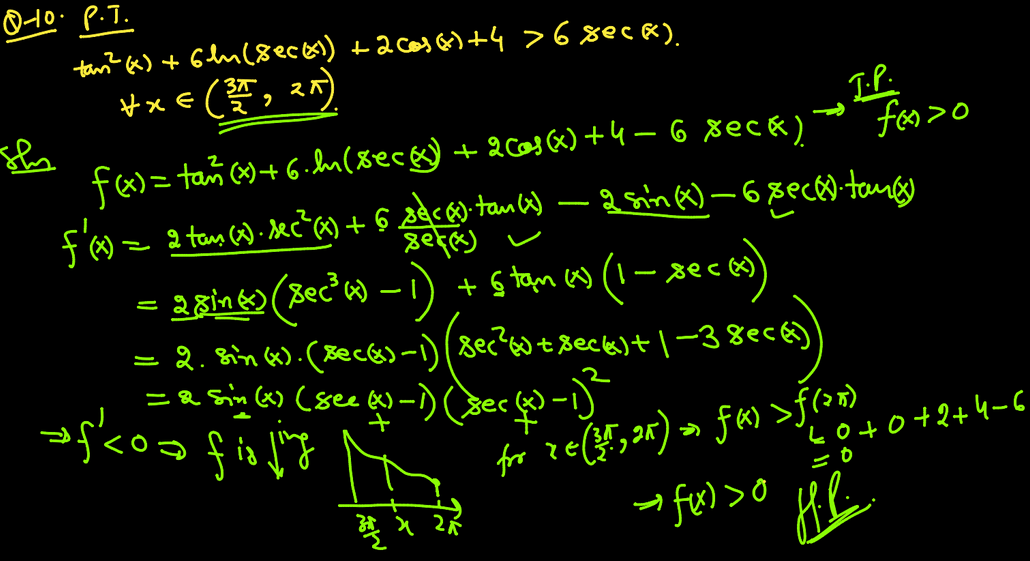 Q-10. P.T.
tan²(x) + 6 ln(sec(x)) + 2cos(x) + 4 > 6 sec(x).
∀ x ∈ (3π/2, 2π).
Soln
f(x) = tan²(x) + 6.ln(sec(x)) + 2cos(x) + 4 − 6 sec(x). → T.P. f(x) > 0
f'(x) = 2tan(x).sec²(x) + 6 sec(x).tan(x)/sec(x) − 2 sin(x) − 6 sec(x).tan(x)
= 2sin(x)(sec³(x) − 1) + 6 tan(x)(1 − sec(x))
= 2. sin(x).(sec(x) − 1)(sec²(x) + sec(x) + 1 − 3 sec(x))
= 2 sin(x) (sec(x) − 1)(sec(x) − 1)²
− + +
⇒ f' < 0 ⇒ f is ↓ing
3π/2 x 2π
for x ∈ (3π/2, 2π) ⇒ f(x) > f(2π)
= 0 + 0 + 2 + 4 − 6
= 0
⇒ f(x) > 0 H.P.